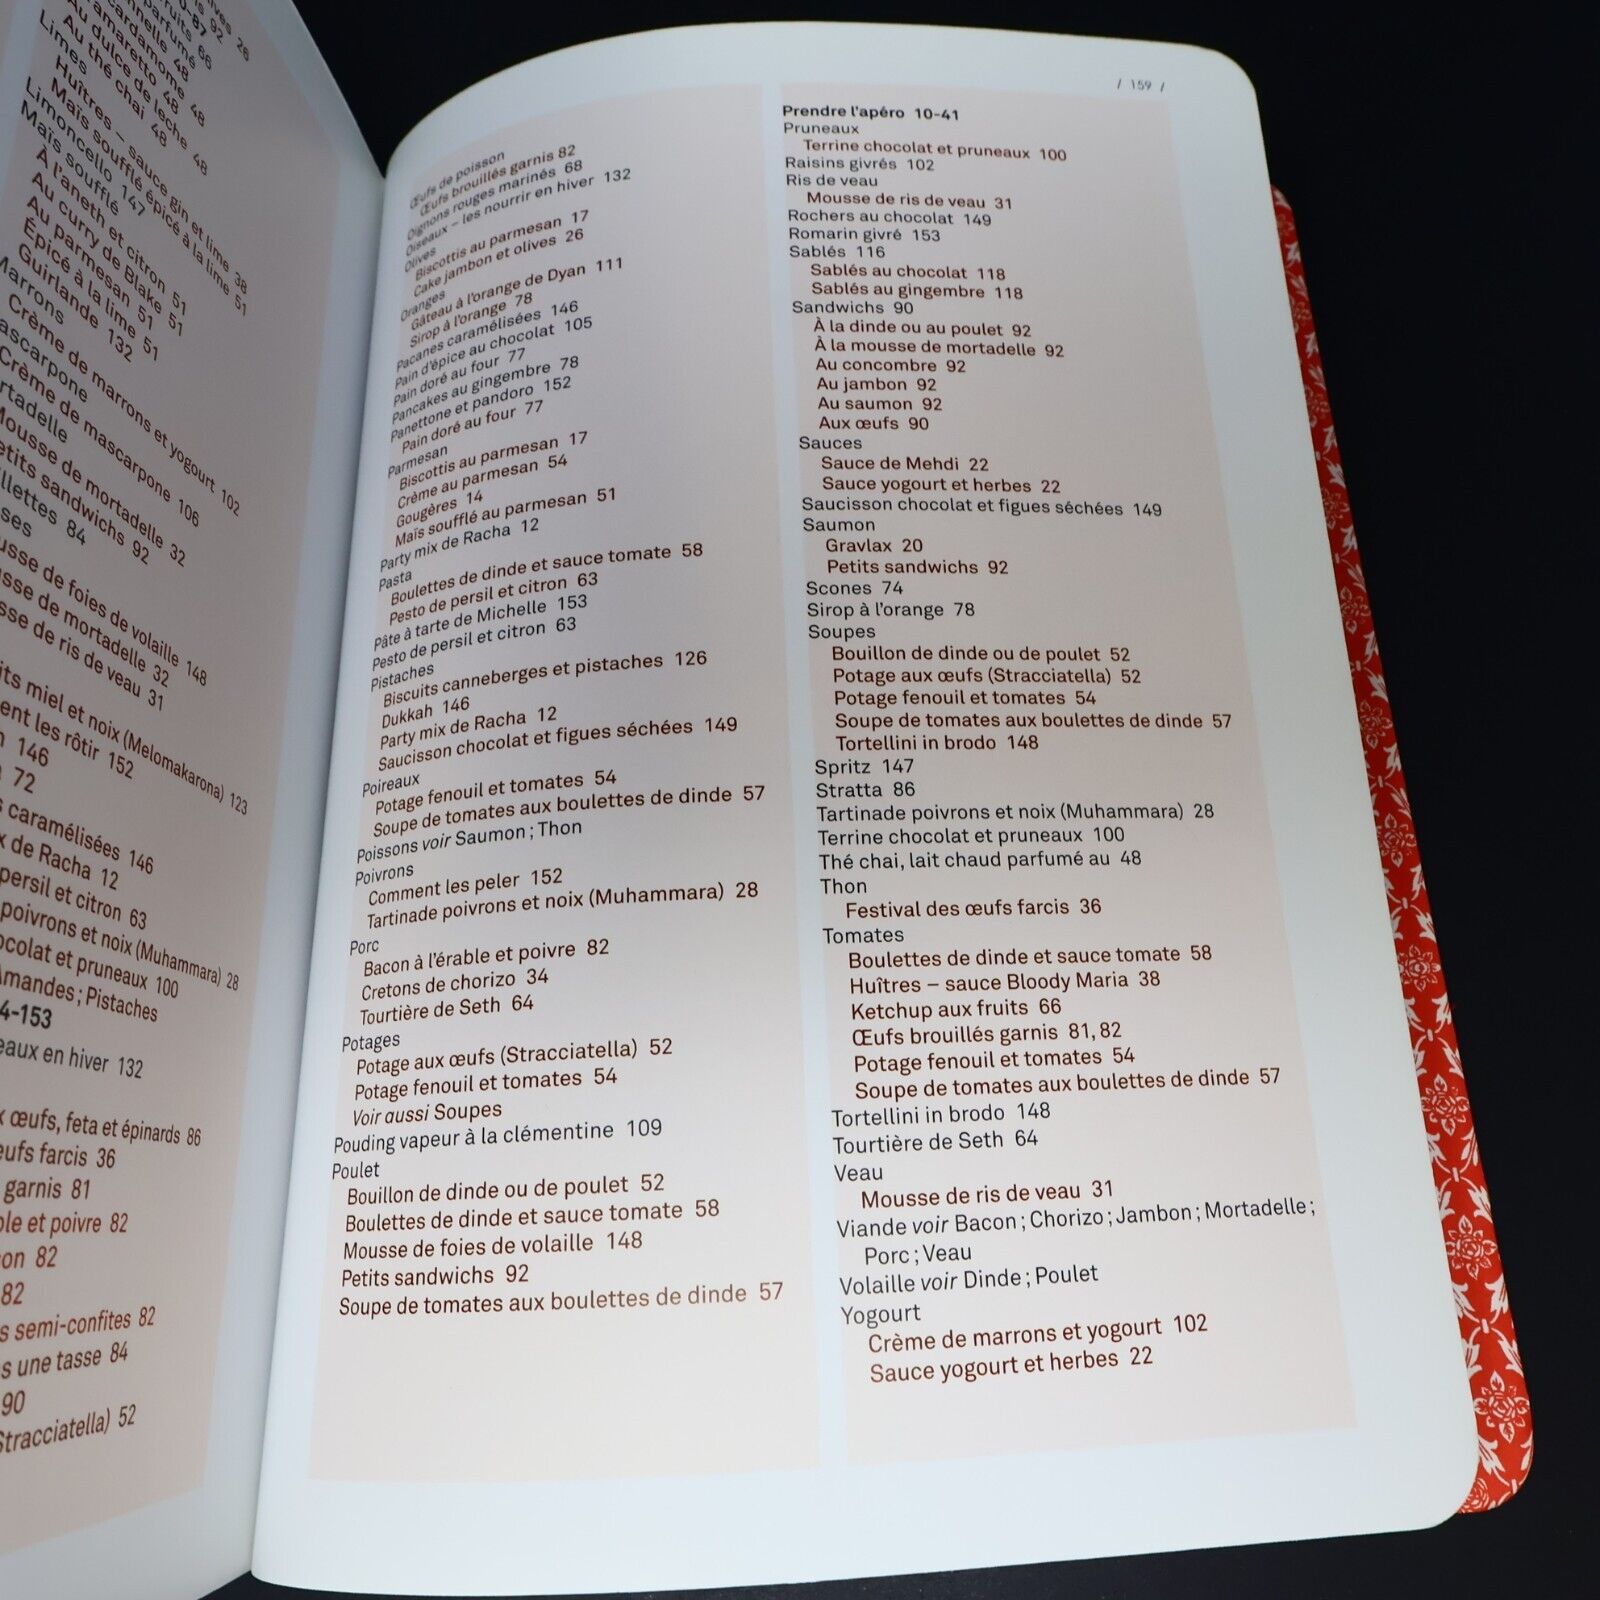 26
92
parfumé
Cardamome 48
Au dulce de leche 48
Au thé chai 48
Limes
Huîtres – sauce gin et lime 38
Maïs soufflé épicé à la lime 51
Limoncello 147
Maïs soufflé
À l'aneth et citron 51
Au curry de Blake 51
Au parmesan 51
Épicé à la lime 51
Guirlande 132
Marrons
Crème de marrons et yogourt 102
Crème de mascarpone 106
Mousse de mortadelle 32
Petits sandwichs 92
84
de foies de volaille 148
de mortadelle 32
de ris de veau 31
miel et noix (Melomakarona) 123
les rôtir 152
146
72
caramélisées 146
de Racha 12
persil et citron 63
poivrons et noix (Muhammara) 28
et pruneaux 100
Amandes ; Pistaches
en hiver 132
œufs, feta et épinards 86
farcis 36
garnis 81
et poivre 82
82
82
semi-confites 82
une tasse 84
90
(Stracciatella) 52
/ 159 /
Œufs de poisson
Œufs brouillés garnis 82
Oignons rouges marinés 68
Oiseaux – les nourrir en hiver 132
Olives
Biscottis au parmesan 17
Cake jambon et olives 26
Oranges
Gâteau à l'orange de Dyan 111
Sirop à l'orange 78
Pacanes caramélisées 146
Pain d'épice au chocolat 105
Pain doré au four 77
Pancakes au gingembre 78
Panettone et pandoro 152
Pain doré au four 77
Parmesan
Biscottis au parmesan 17
Crème au parmesan 54
Gougères 14
Maïs soufflé au parmesan 51
Party mix de Racha 12
Pasta
Boulettes de dinde et sauce tomate 58
Pesto de persil et citron 63
Pâte à tarte de Michelle 153
Pesto de persil et citron 63
Pistaches
Biscuits canneberges et pistaches 126
Dukkah 146
Party mix de Racha 12
Saucisson chocolat et figues séchées 149
Poireaux
Potage fenouil et tomates 54
Soupe de tomates aux boulettes de dinde 57
Poissons voir Saumon ; Thon
Poivrons
Comment les peler 152
Tartinade poivrons et noix (Muhammara) 28
Porc
Bacon à l'érable et poivre 82
Cretons de chorizo 34
Tourtière de Seth 64
Potages
Potage aux œufs (Stracciatella) 52
Potage fenouil et tomates 54
Voir aussi Soupes
Pouding vapeur à la clémentine 109
Poulet
Bouillon de dinde ou de poulet 52
Boulettes de dinde et sauce tomate 58
Mousse de foies de volaille 148
Petits sandwichs 92
Soupe de tomates aux boulettes de dinde 57
Prendre l'apéro 10-41
Pruneaux
Terrine chocolat et pruneaux 100
Raisins givrés 102
Ris de veau
Mousse de ris de veau 31
Rochers au chocolat 149
Romarin givré 153
Sablés 116
Sablés au chocolat 118
Sablés au gingembre 118
Sandwichs 90
À la dinde ou au poulet 92
À la mousse de mortadelle 92
Au concombre 92
Au jambon 92
Au saumon 92
Aux œufs 90
Sauces
Sauce de Mehdi 22
Sauce yogourt et herbes 22
Saucisson chocolat et figues séchées 149
Saumon
Gravlax 20
Petits sandwichs 92
Scones 74
Sirop à l'orange 78
Soupes
Bouillon de dinde ou de poulet 52
Potage aux œufs (Stracciatella) 52
Potage fenouil et tomates 54
Soupe de tomates aux boulettes de dinde 57
Tortellini in brodo 148
Spritz 147
Stratta 86
Tartinade poivrons et noix (Muhammara) 28
Terrine chocolat et pruneaux 100
Thé chai, lait chaud parfumé au 48
Thon
Festival des œufs farcis 36
Tomates
Boulettes de dinde et sauce tomate 58
Huîtres – sauce Bloody Maria 38
Ketchup aux fruits 66
Œufs brouillés garnis 81, 82
Potage fenouil et tomates 54
Soupe de tomates aux boulettes de dinde 57
Tortellini in brodo 148
Tourtière de Seth 64
Veau
Mousse de ris de veau 31
Viande voir Bacon ; Chorizo ; Jambon ; Mortadelle ;
Porc ; Veau
Volaille voir Dinde ; Poulet
Yogourt
Crème de marrons et yogourt 102
Sauce yogourt et herbes 22